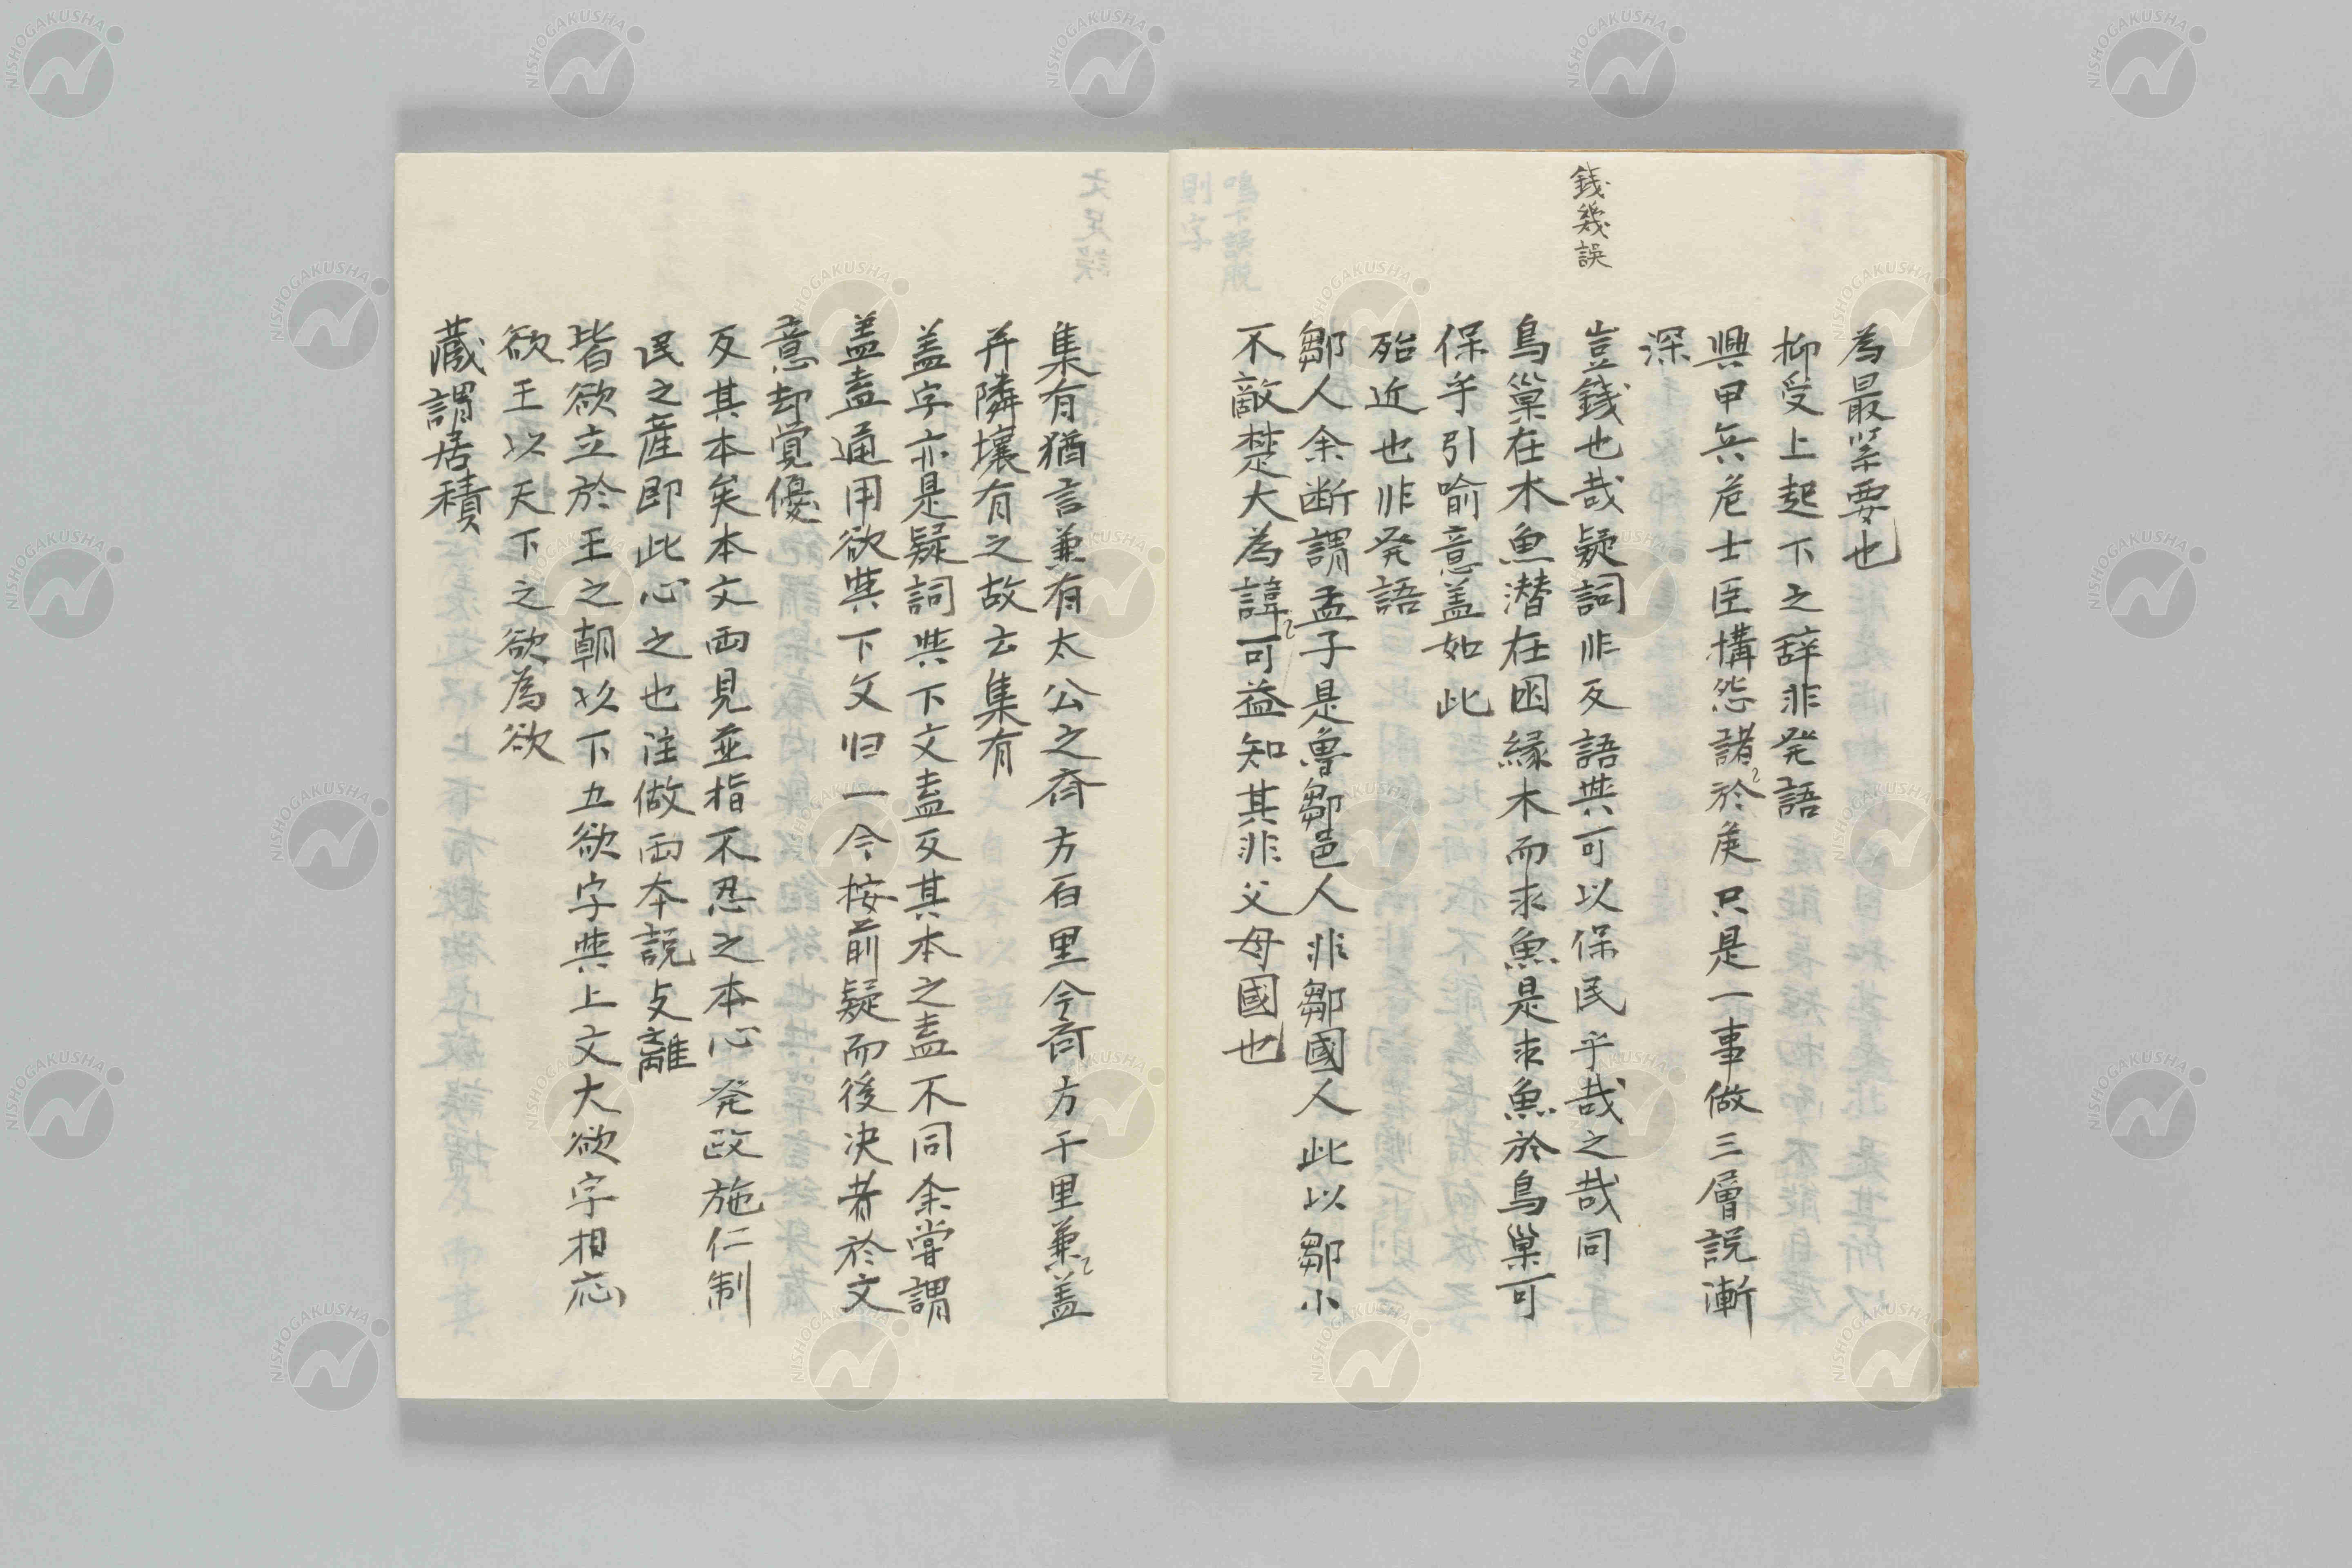 銭幾誤
為最緊要也
抑受上起下之辞非発語
興甲兵危士臣構怨諸〻於侯只是一事做三層説漸
深
豈銭也哉疑詞非反語與可以保民乎哉之哉同
鳥巢在木魚潜在困縁木而求魚是求魚於鳥巢可
保乎引喻意盖如此
殆近也非発語
鄒人余断謂孟子是魯鄒邑人非鄒國人此以鄒小
不敵楚大為諱〻可益知其非父母國也
集有猶言兼有太公之斉方百里今斉方千里兼〻盖
并隣壤有之故云集有
盖字亦是疑詞與下文盍反其本之盍不同余嘗謂
盖盍通用欲與下文归一今按前疑而後决者於文
意却覚優
反其本矣本文両見並指不忍之本心発政施仁制
民之産即此心之也注做両本説支離
皆欲立於王之朝以下五欲字與上文大欲字相応
欲王以天下之欲為欲
蔵謂居積